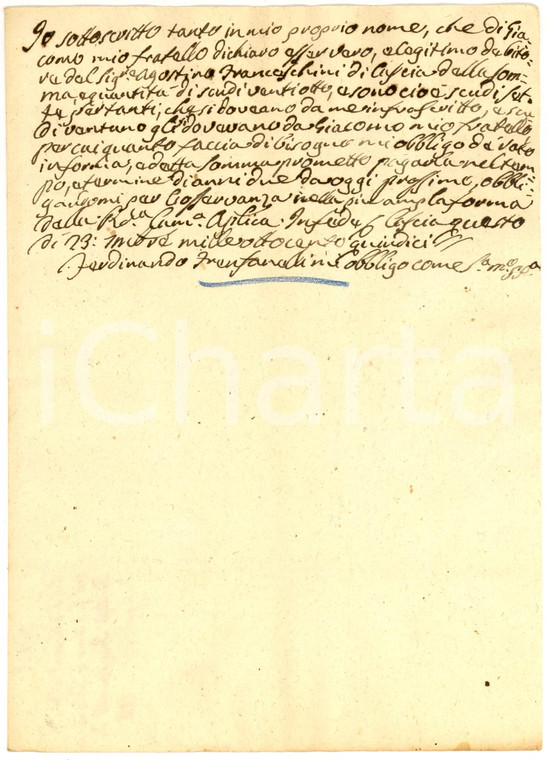 Io sottoscritto tanto in mio proprio nome, che di Gia=
como mio fratello dichiaro esser vero, e legitimo debito=
re del Sig.re Agostino Franceschini di Cascia della som=
ma, e quantità di scudi ventiotto, e sono cioè scudi set=
te, per tanti, che si doveano da me infrascritto, e scu
di ventuno gli dovevano da Giacomo mio fratello
per cui quanto faccia di bisogno mi obbligo de rato
in forma, e detta somma prometto pagarla nel tem=
po, e termine di anni due da oggi prossimi, obbli=
gandomi per l'osservanza nella più ampla forma
della R.da Cam.a Aplica. In fede Cascia questo
dì 23: mille ottocento quindici
Ferdinando Trenfanellini obbligo come S.a m.o pp.a
iCharta